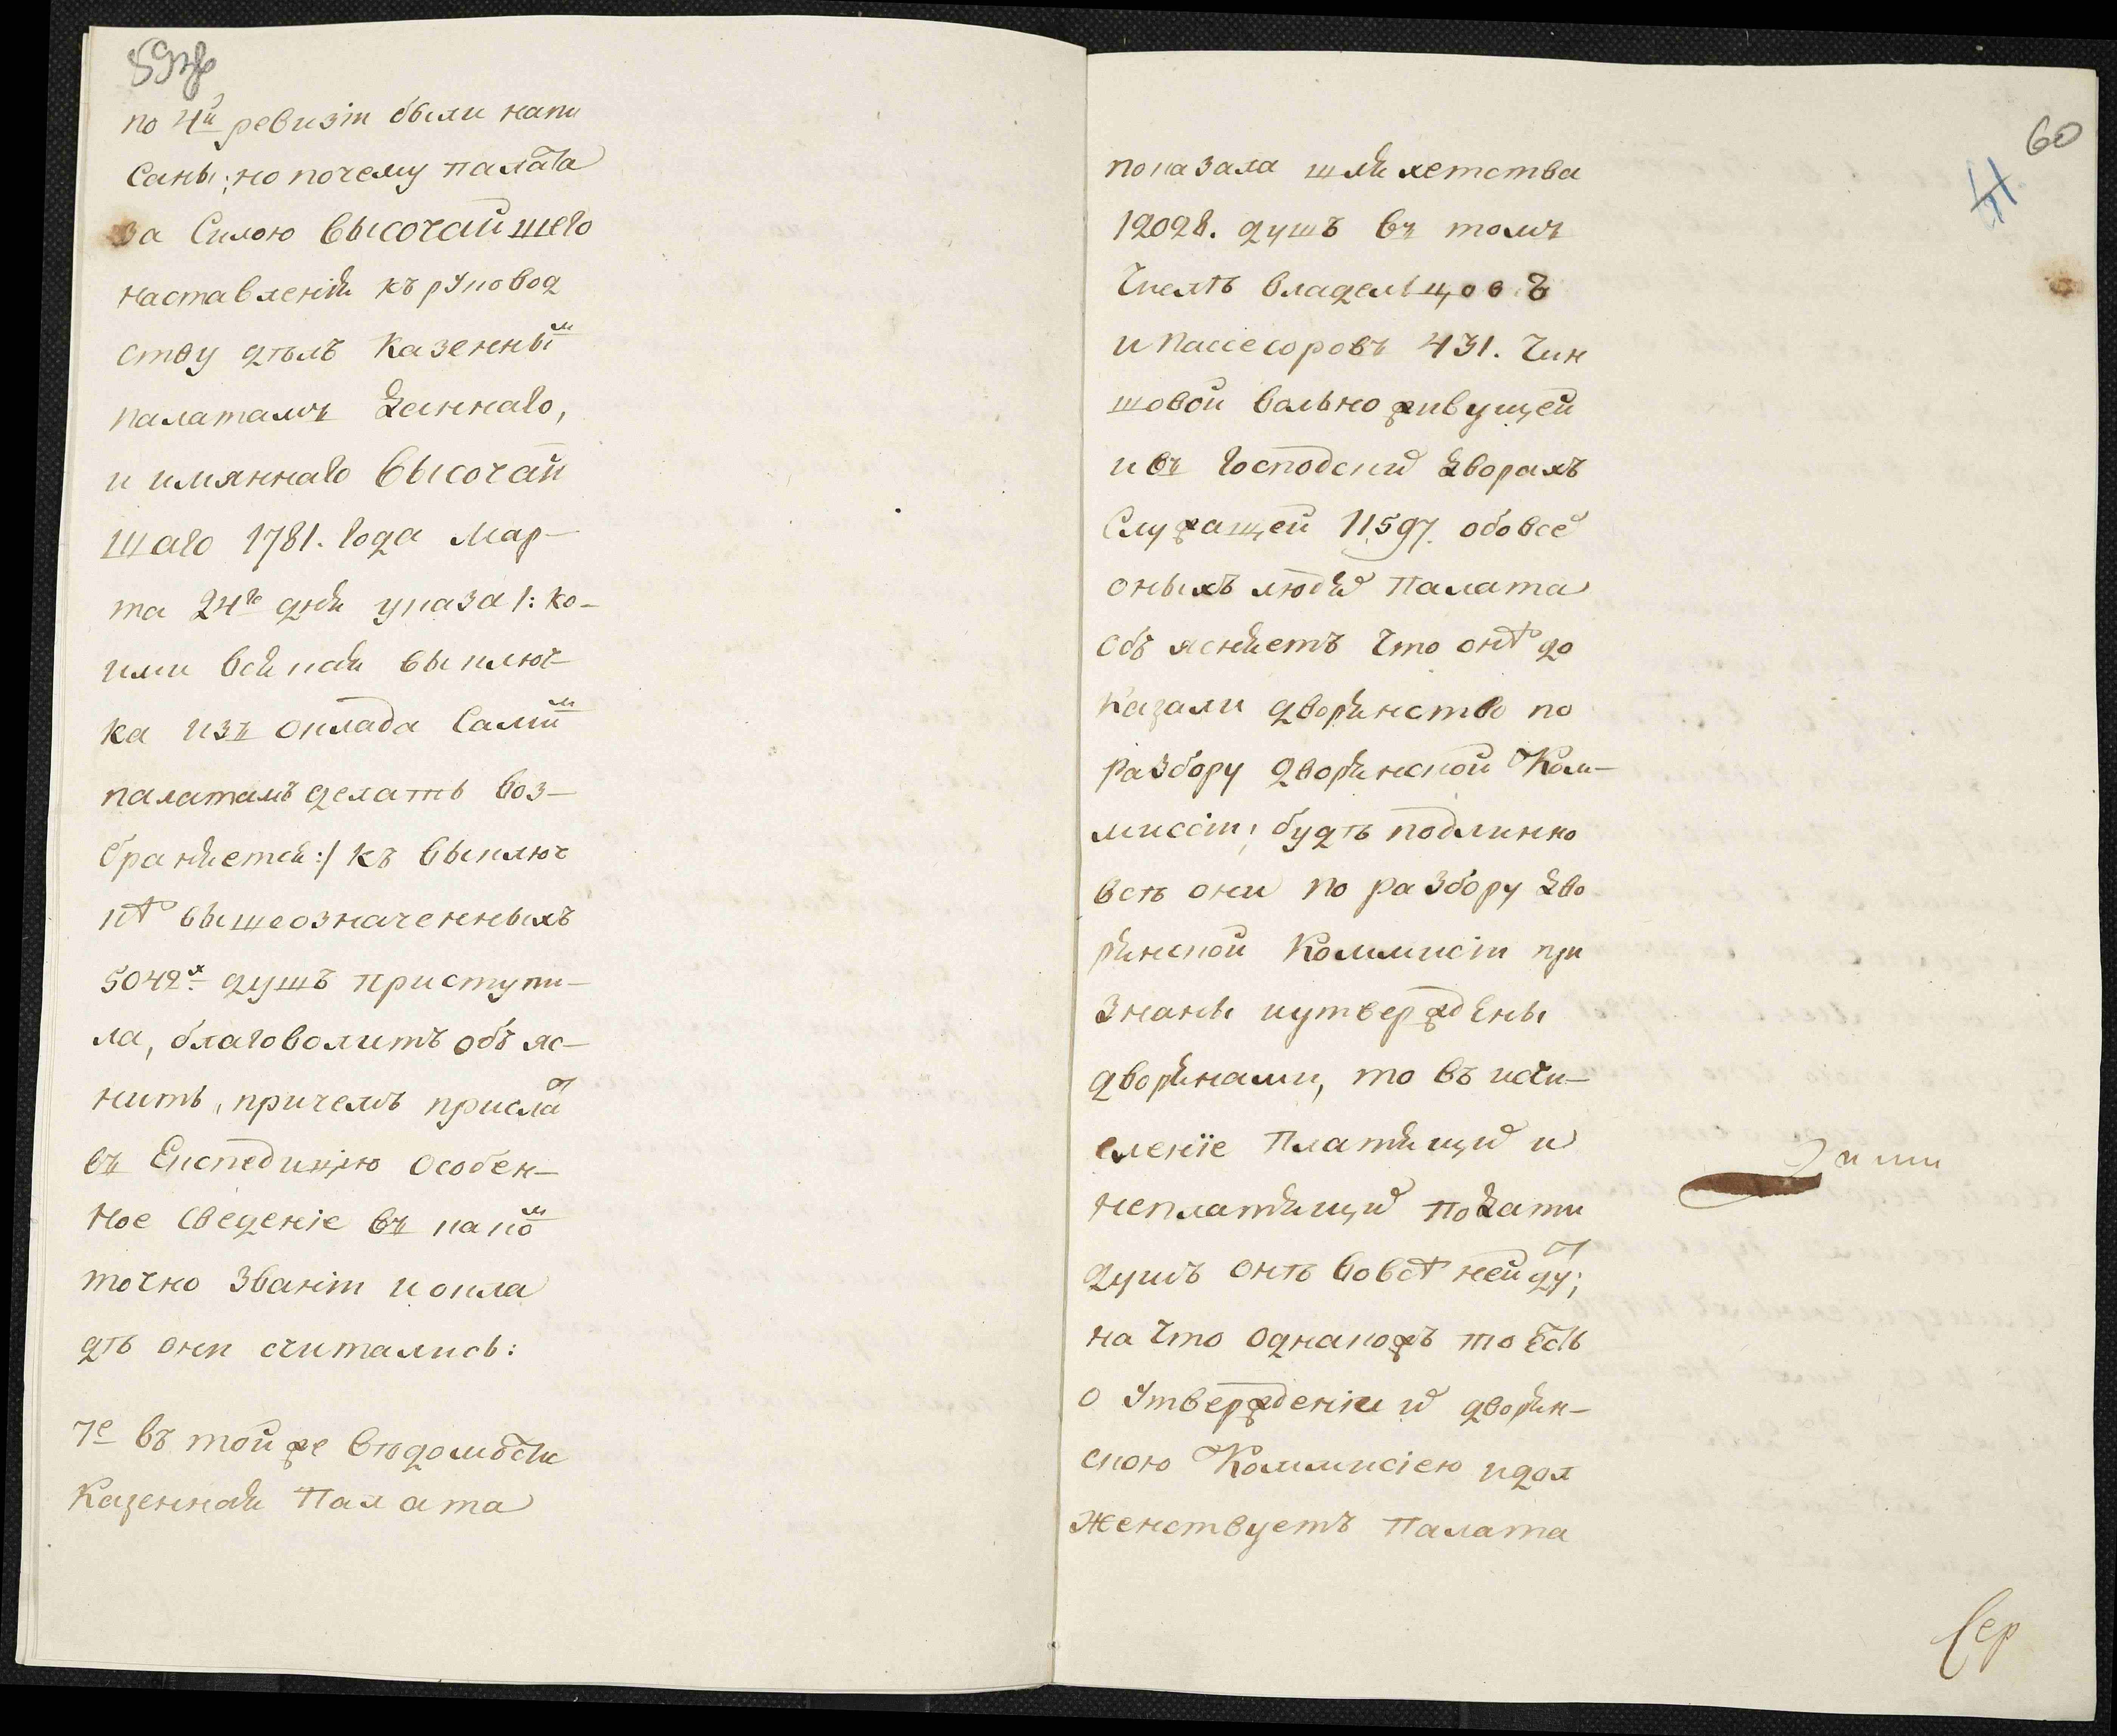 59об
по 4й ревизіи были напи
саны; но почему палата
за силою высочайшего
наставленія къ руковод
ству дѣлъ казеннымъ
палатамъ даннаго,
и имяннаго высочай
шаго 1781. года мар-
та 24го дня указа /: ко-
ими всякая выключ
ка изъ оклада самимъ
палатамъ делать воз-
браняется :/ къ выключ
кѣ вышеозначенныхъ
5042х душъ приступи-
ла, благоволитъ объяс-
нить, причемъ прислать
въ Експедицію особен-
ное сведеніе въ какомъ
точно званіи и окла
дѣ они считались:
7е въ той же вѣдомости
Казенная Палата
60
показала шляхетства
12028. душъ въ томъ
числѣ владельцовъ
и пассесоровъ 431. чин
шовой вольно живущей
и въ господских дворахъ
служащей 11597. обо всех
оныхъ людях Палата
объясняетъ что онѣ до
казали дворянство по
разбору дворянской Ком-
миссіи; будѣ подлинно
всѣ они по разбору дво
рянской Коммисіи при
знаны и утверждены
дворянами, то въ исчи-
сленіе платящих и
неплатящих подати
душъ онѣ вовсѣ нейдут;
на что однакожъ то есть
о утвержденіи их дворян-
скою Коммисіею и дол
женствуетъ Палата
Сер